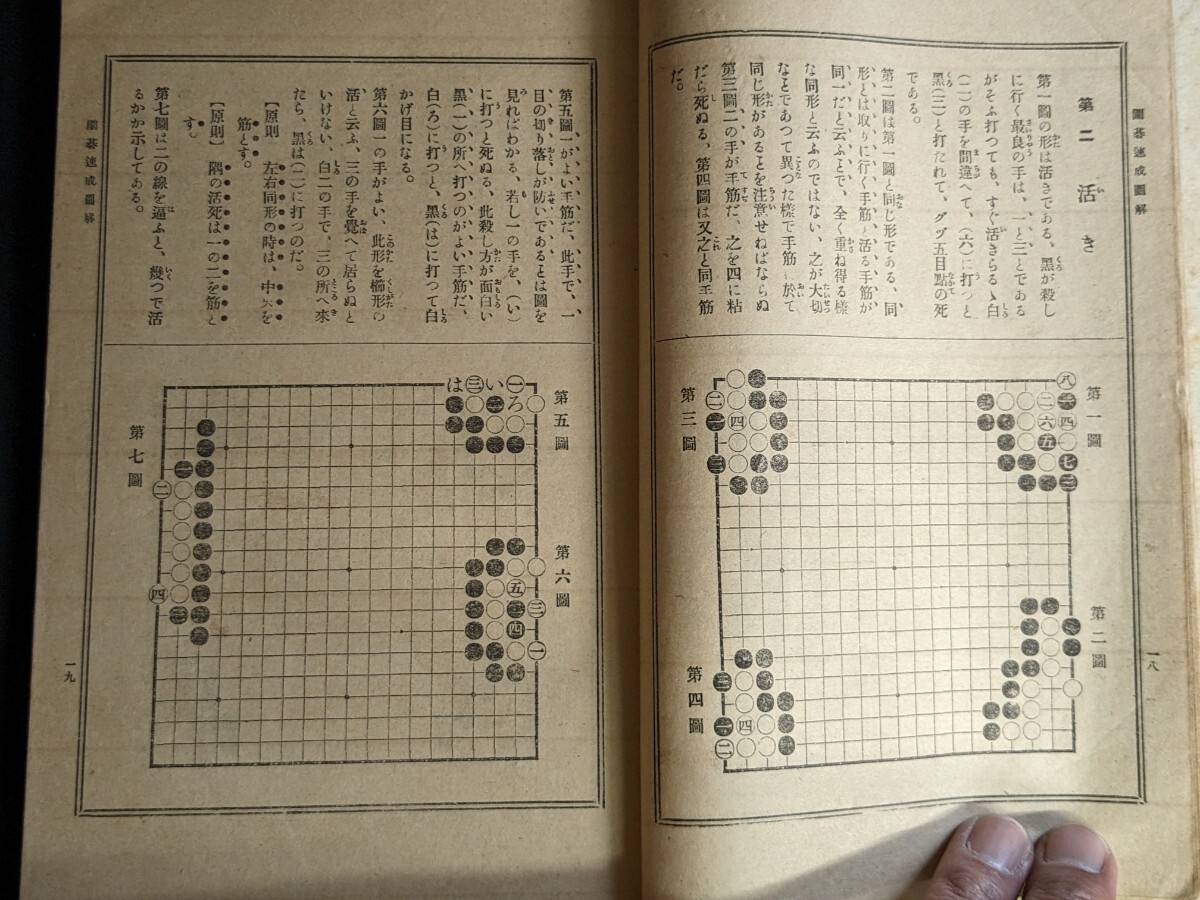 圍碁速成圖解
第二 活き
第一圖の形は活きである、黑が殺し
に行く最良の手は、一と三とである
がそふ打つても、すぐ活きらるゝ白
(二)の手を間違へて、(六)に打つと
黑(三)と打たれて、グヾ五目點の死
である。
第二圖は第一圖と同じ形である、同
形とは取りに行く手筋と活る手筋が
同一だと云ふとで、全く重ね得る樣
な同形と云ふのではない、之が大切
なとであつて異つた樣で手筋に於て
同じ形があるとを注意せねばならぬ
第三圖二の手が手筋だ、之を四に粘
だら死ぬる、第四圖は又之と同手筋
だ。
第一圖
第二圖
第三圖
第四圖
一八
第五圖一がよい手筋だ、此手で、一
目の切り落しが防いであるとは圖を
見ればわかる、若し一の手を、(い)
に打つと死ぬる、此殺し方が面白い
黑(一)の所へ打つのがよい手筋だ、
白(ろ)に打つと、黑(は)に打つて白
かげ目になる。
第六圖一の手がよい、此形を櫛形の
活と云ふ、三の手を覺へて居らぬと
いけない、白二の手で、三の所へ來
たら、黑は(二)に打つのだ。
【原則 左右同形の時は、中央を
筋とす。
【原則】 隅の活死は一の二を筋と
す。
第七圖は二の線を逼ふと、幾つで活
るかが示してある。
第五圖
第六圖
第七圖
圍碁速成圖解
一九